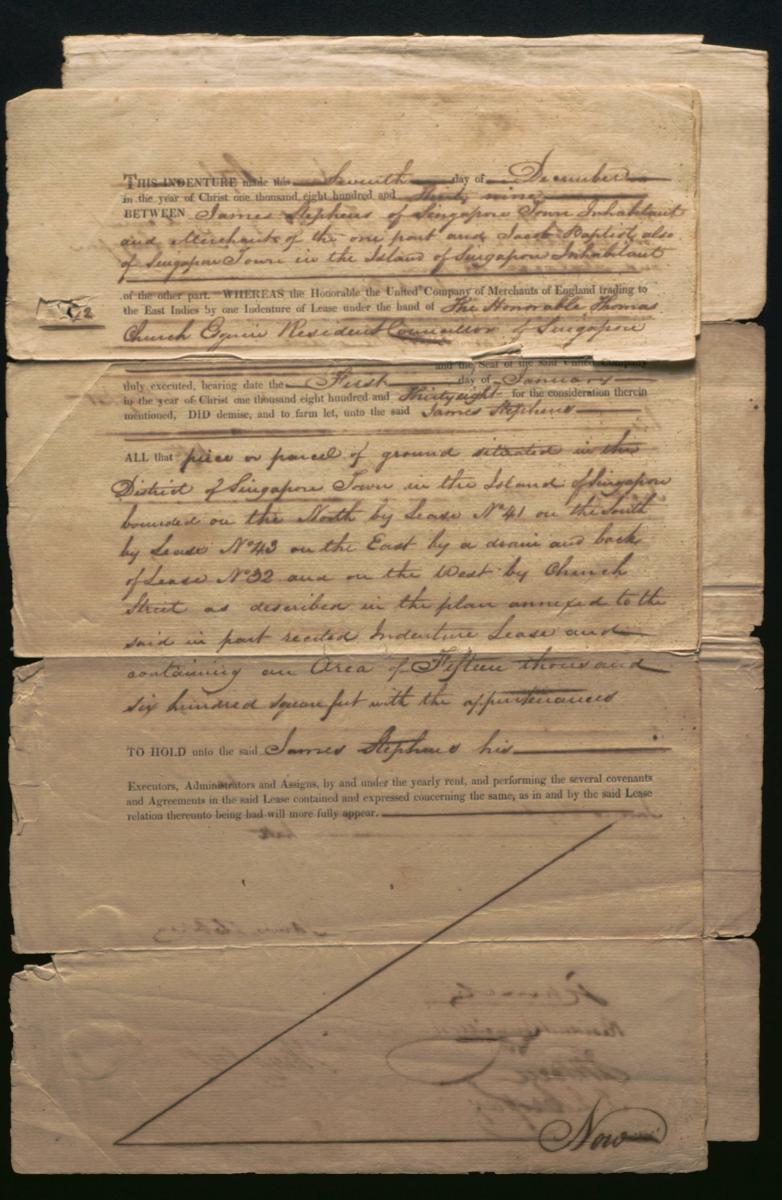 THIS INDENTURE made this Seventh day of December
in the year of Christ one thousand eight hundred and Thirty nine
BETWEEN James Stephens of Singapore Town Inhabitant
and Merchant of the one part and Jacob Baptist also
of Singapore Town in the Island of Singapore Inhabitant
of the other part. WHEREAS the Honorable the United Company of Merchants of England trading to
the East Indies by one Indenture of Lease under the hand of The Honorable Thomas
Church Esquire Resident Councillor of Singapore
2
and the Seal of the said United Company
duly executed, bearing date the First day of January
in the year of Christ one thousand eight hundred and Thirty eight for the consideration therein
mentioned, DID demise, and to farm let, unto the said James Stephens
ALL that piece or parcel of ground situated in the
District of Singapore Town in the Island of Singapore
bounded on the North by Lease No 41 on the South
by Lease No 43 on the East by a drain and back
of Lease No 32 and on the West by Church
Street as described in the plan annexed to the
said in part recited Indenture Lease and
containing an Area of Fifteen thousand
six hundred square feet with the appurtenances
TO HOLD unto the said James Stephens his
Executors, Administrators and Assigns, by and under the yearly rent, and performing the several covenants
and Agreements in the said Lease contained and expressed concerning the same, as in and by the said Lease
relation thereunto being had will more fully appear.
Now